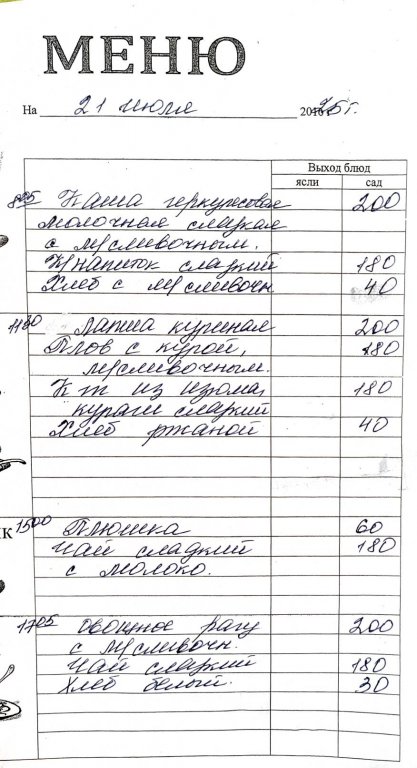 МЕНЮ
На 21 июля 2025г.
Выход блюд
ясли сад
8 05 Каша геркулесовая 200
молочная сладкая
с м/сливочным.
К/напиток сладкий 180
Хлеб с м/сливочн 40
11 30 Лапша куриная 200
Плов с курой, 180
м/сливочным.
К-т из изюма,
180
кураги сладкий
Хлеб ржаной 40
К 15 00 Плюшка 60
Чай сладкий 180
с молоко.
17 05 Овощное рагу 200
с м/сливочн.
Чай сладкий 180
Хлеб белый. 30